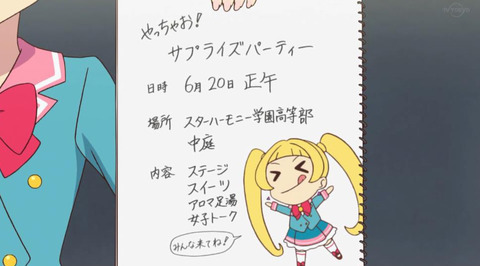 やっちゃお！
サプライズパーティー
日時 6月20日 正午
場所 スターハーモニー学園高等部
中庭
内容 ステージ
スイーツ
アロマ足湯
女子トーク
みんな来てね！